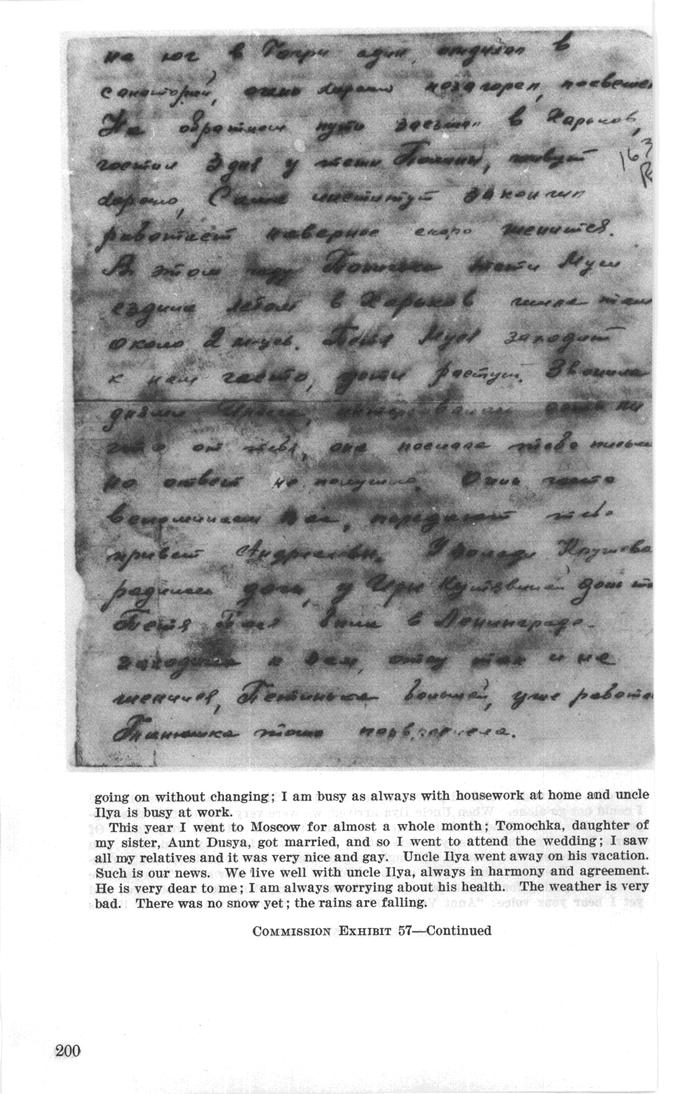 на юг в Гагри один, отдыхал в
санатории, очень хорошо
На обратном пути заехал в Харьков,
гостил 3 дня у тети Полины, живут
хорошо, Саша институт закончил
работает наверное скоро женится.
В этом году тети Муси
ездила летом в Харьков там
около 2 Тетя Муся заходит
к нам часто, дети растут. Звонила
от тебя, она послала тебе
но ответ не получила. Очень часто
вспоминаем вас, передают тебе
привет У Володи
родилась дочь, у Иры
Тетя Поля была в Ленинграде
заходила к вам, отец так и не
женился, Петинька большой, уже
Танюшка тоже
163
going on without changing; I am busy as always with housework at home and uncle
Ilya is busy at work.
This year I went to Moscow for almost a whole month; Tomochka, daughter of
my sister, Aunt Dusya, got married, and so I went to attend the wedding; I saw
all my relatives and it was very nice and gay. Uncle Ilya went away on his vacation.
Such is our news. We live well with uncle Ilya, always in harmony and agreement.
He is very dear to me; I am always worrying about his health. The weather is very
bad. There was no snow yet; the rains are falling.
COMMISSION EXHIBIT 57—Continued
200